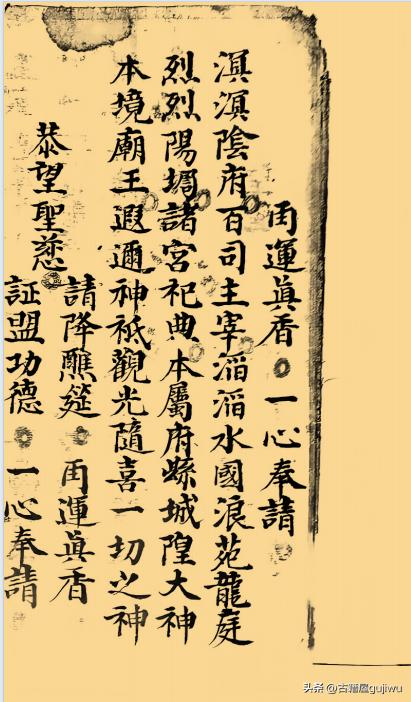 再運眞香○一心奉請
溟溟陰府百司主宰滔滔水國浪苑龍庭
烈烈陽堈諸宮祀典本屬府縣城隍大神
本境廟王遐邇神祇觀光隨喜一切之神
恭望聖慈
請降醮筵○再運眞香
証盟功德○一心奉請
头条 @古籍屋gujiwu